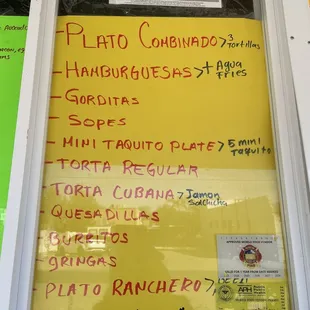 - PLATO COMBINADO > 3 tortillas
- HAMBURGUESAS > + Agua Fries
- GORDITAS
- SOPES
- MINI TAQUITO PLATE > 5 mini taquito
- TORTA REGULAR
- TORTA CUBANA > Jamon Salchicha
- QUESADILLAS
- BURRITOS
- GRINGAS
- PLATO RANCHERO >
APH